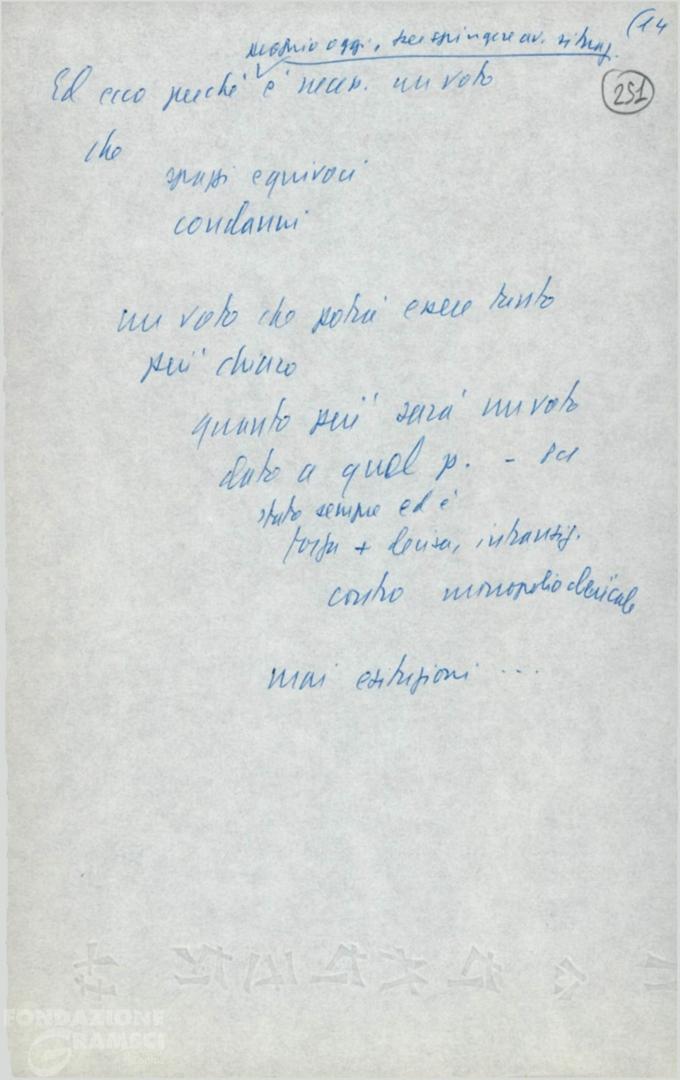 (14
proprio oggi, per spingere av. situaz.
251
Ed ecco perché è neces. un voto
che
spazzi equivoci
condanni
un voto che potrà essere tanto
più chiaro
quanto più sarà un voto
dato a quel p. -
stato sempre ed è
forza + decisa, intransig.
contro monopolio clericale
mai esitazioni ...
FONDAZIONE
GRAMSCI